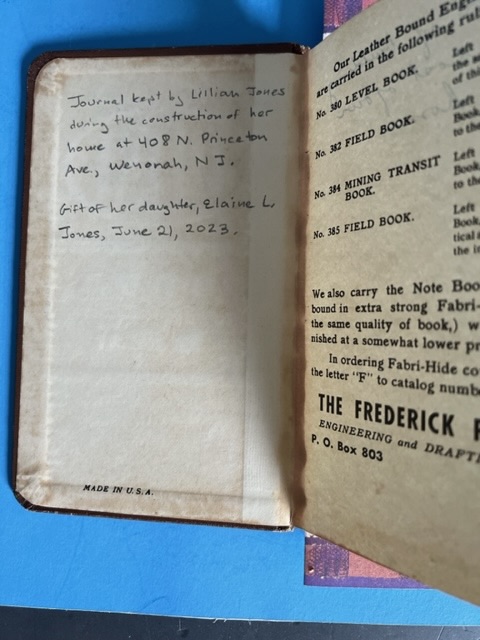 Journal kept by Lillian Jones
during the construction of her
home at 408 N. Princeton
Ave., Wenonah, NJ.
Gift of her daughter, Elaine L.
Jones, June 21, 2023.
MADE IN U.S.A.
Our Leather Bound Eng
are carried in the following rul
No. 380 LEVEL BOOK.
Left
the se
of thi
No. 382 FIELD BOOK.
Left
Book,
to the
No. 384 MINING TRANSIT
BOOK.
Left
Book
to the
No. 385 FIELD BOOK.
Left
Book,
tical a
the in
We also carry the Note Boo
bound in extra strong Fabri-
the same quality of book,) w
nished at a somewhat lower pr
In ordering Fabri-Hide co
the letter "F" to catalog numb
THE FREDERICK
ENGINEERING and DRAFT
P. O. Box 803